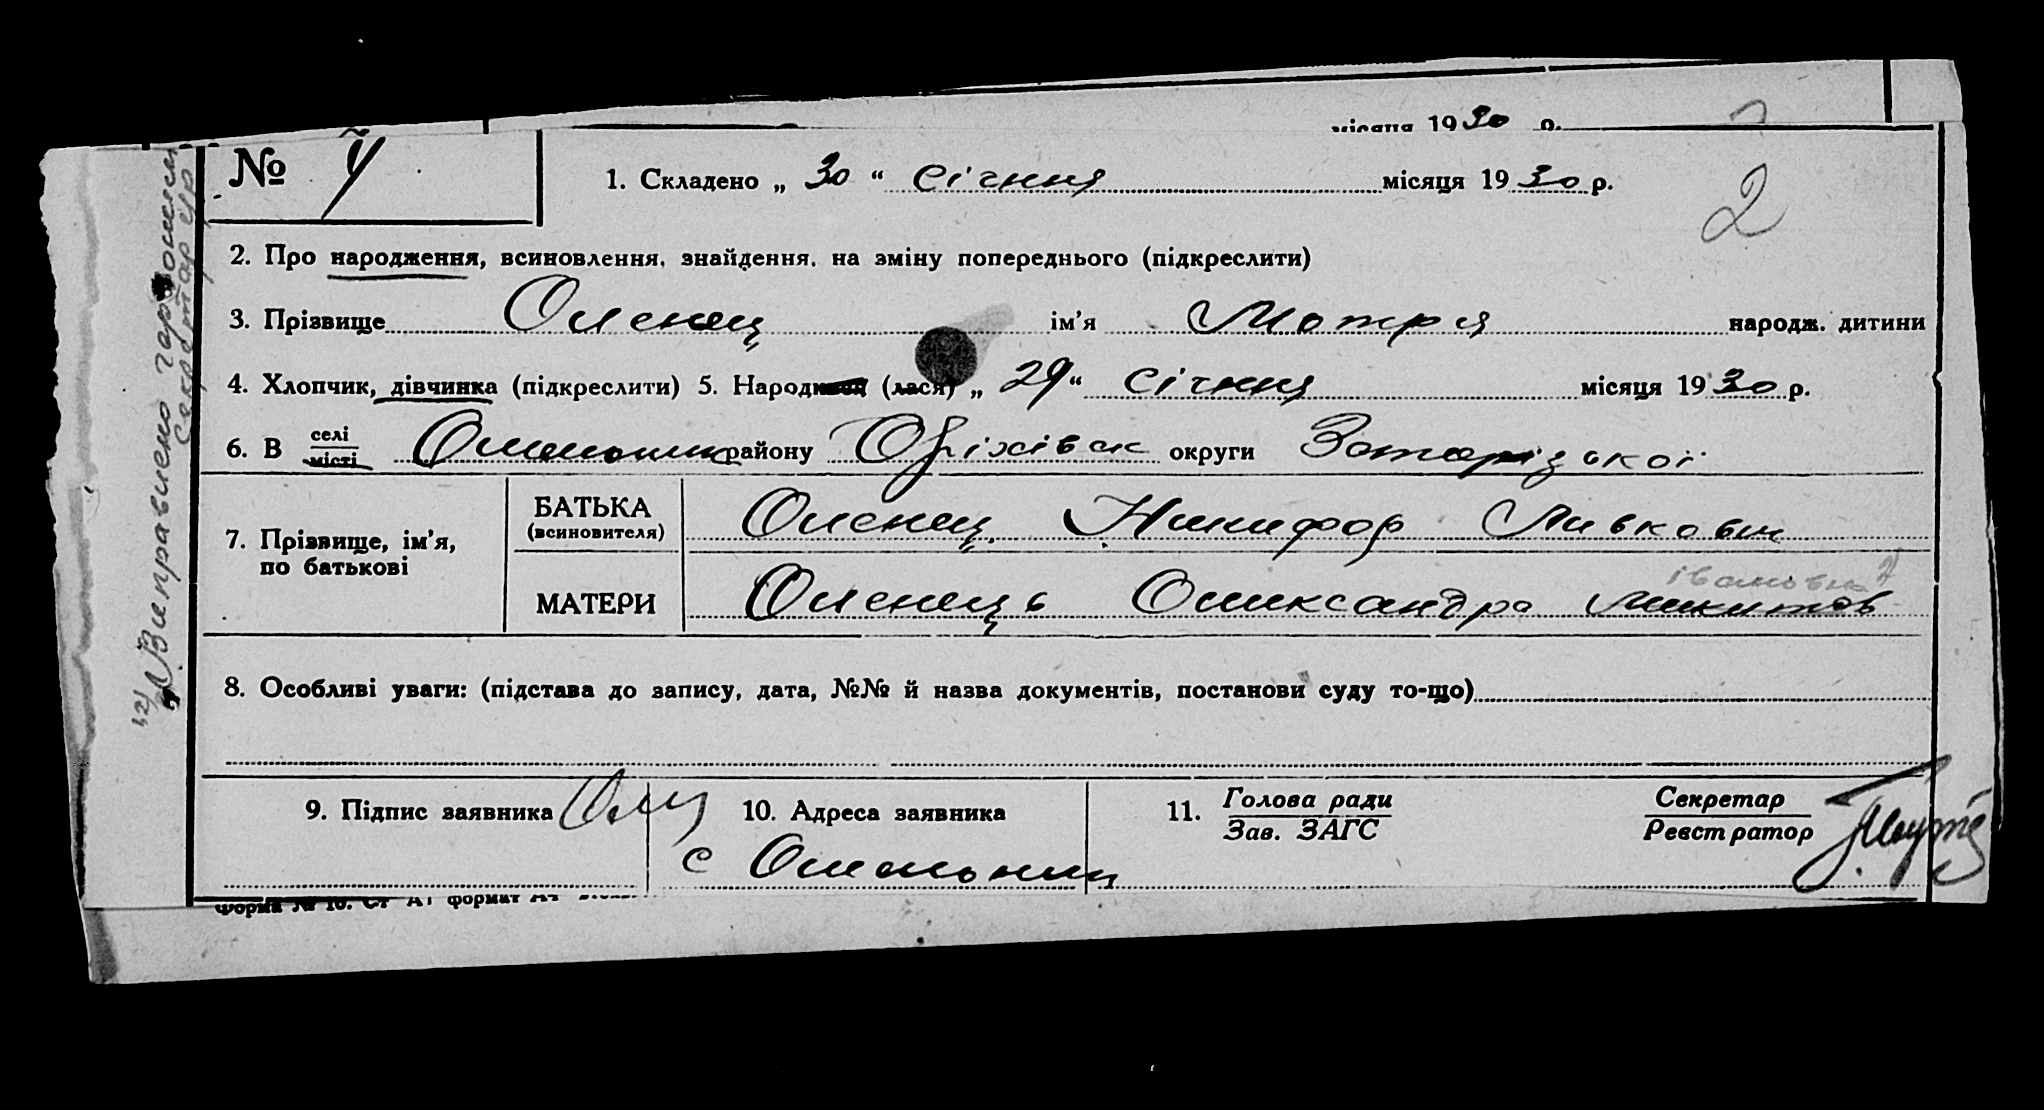 місяця 1930 р.
№ 4
1. Складено „ 30 “ Січння місяця 1930 р.
2
2. Про народження, всиновлення, знайдення, на зміну попереднього (підкреслити)
3. Прізвище Оленец ім’я Мотря народж. дитини
4. Хлопчик, дівчинка (підкреслити) 5. Народився (лася) „ 29 “ Січння місяця 1930 р.
6. В селі
місті району Оріхівск округи Запорізської
7. Прізвище, ім’я,
по батькові
БАТЬКА
(всиновителя)
Оленец Никифор Ливкович
МАТЕРИ
Оленець Олиександра Микитов
івановна
8. Особливі уваги: (підстава до запису, дата, №№ й назва документів, постанови суду то-що)
9. Підпис заявника
10. Адреса заявника
с
11. Голова ради
Зав. ЗАГС
Секретар
Реєстратор
Форма № 10. Ст А4 формат А4
Виправлено
Секретар